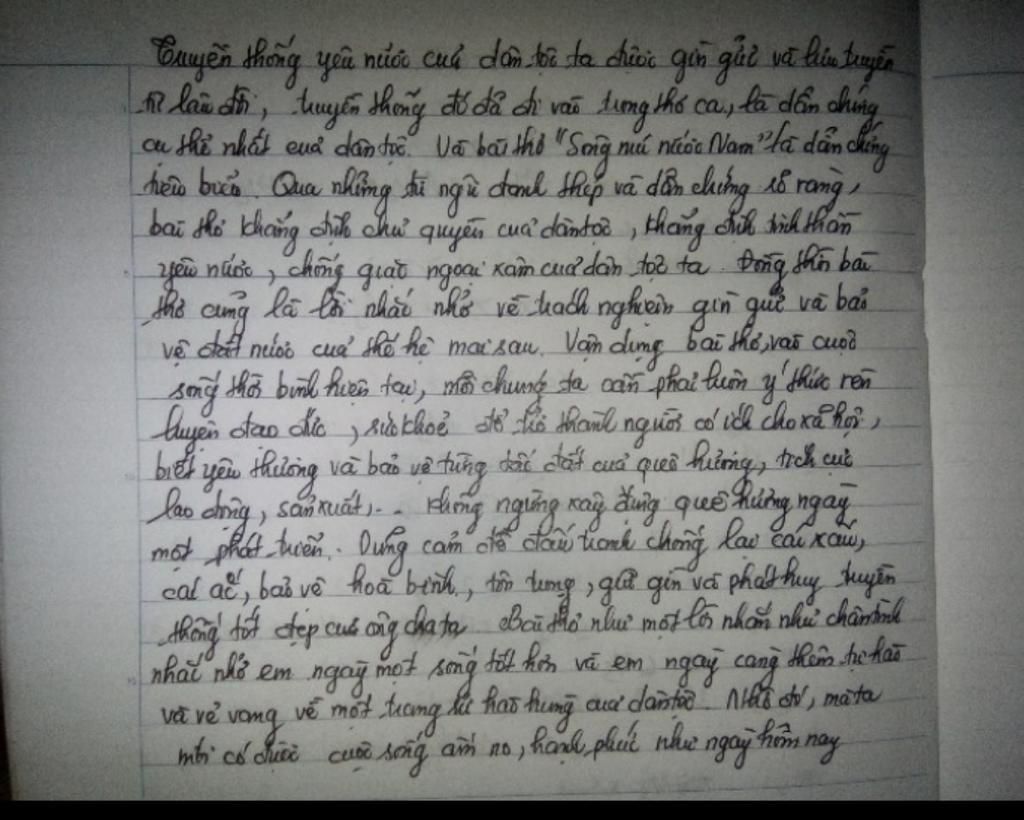 Truyền thống yêu nước của dân tộc ta được gìn giữ và lưu truyền
từ lâu đời, truyền thống đó đã đi vào trong thơ ca, là dẫn chứng
cụ thể nhất của dân tộc. Và bài thơ "Sông núi nước Nam" là dẫn chứng
tiêu biểu. Qua những từ ngữ đanh thép và dẫn chứng rõ ràng,
bài thơ khẳng định chủ quyền của dân tộc, khẳng định tinh thần
yêu nước, chống giặc ngoại xâm của dân tộc ta. Đồng thời bài
thơ cũng là lời nhắc nhở về trách nghiệm gìn giữ và bảo
vệ đất nước của thế hệ mai sau. Vận dụng bài thơ, vào cuộc
sống thời bình hiện tại, mỗi chúng ta cần phải luôn ý thức rèn
luyện đạo đức, sức khoẻ để trở thành người có ích cho xã hội,
biết yêu thương và bảo vệ từng tấc đất của quê hương, tích cực
lao động, sản xuất,... không ngừng xây dựng quê hương ngày
một phát triển. Dũng cảm để đấu tranh chống lại cái xấu,
cái ác, bảo vệ hoà bình, tôn trọng, giữ gìn và phát huy truyền
thống tốt đẹp của ông cha ta. Bài thơ như một lời nhắn nhủ chân tình
nhắc nhở em ngày một sống tốt hơn và em ngày càng thêm tự hào
và vẻ vang về một trang sử hào hùng của dân tộc. Nhờ đó, mà ta
mới có được cuộc sống ấm no, hạnh phúc như ngày hôm nay